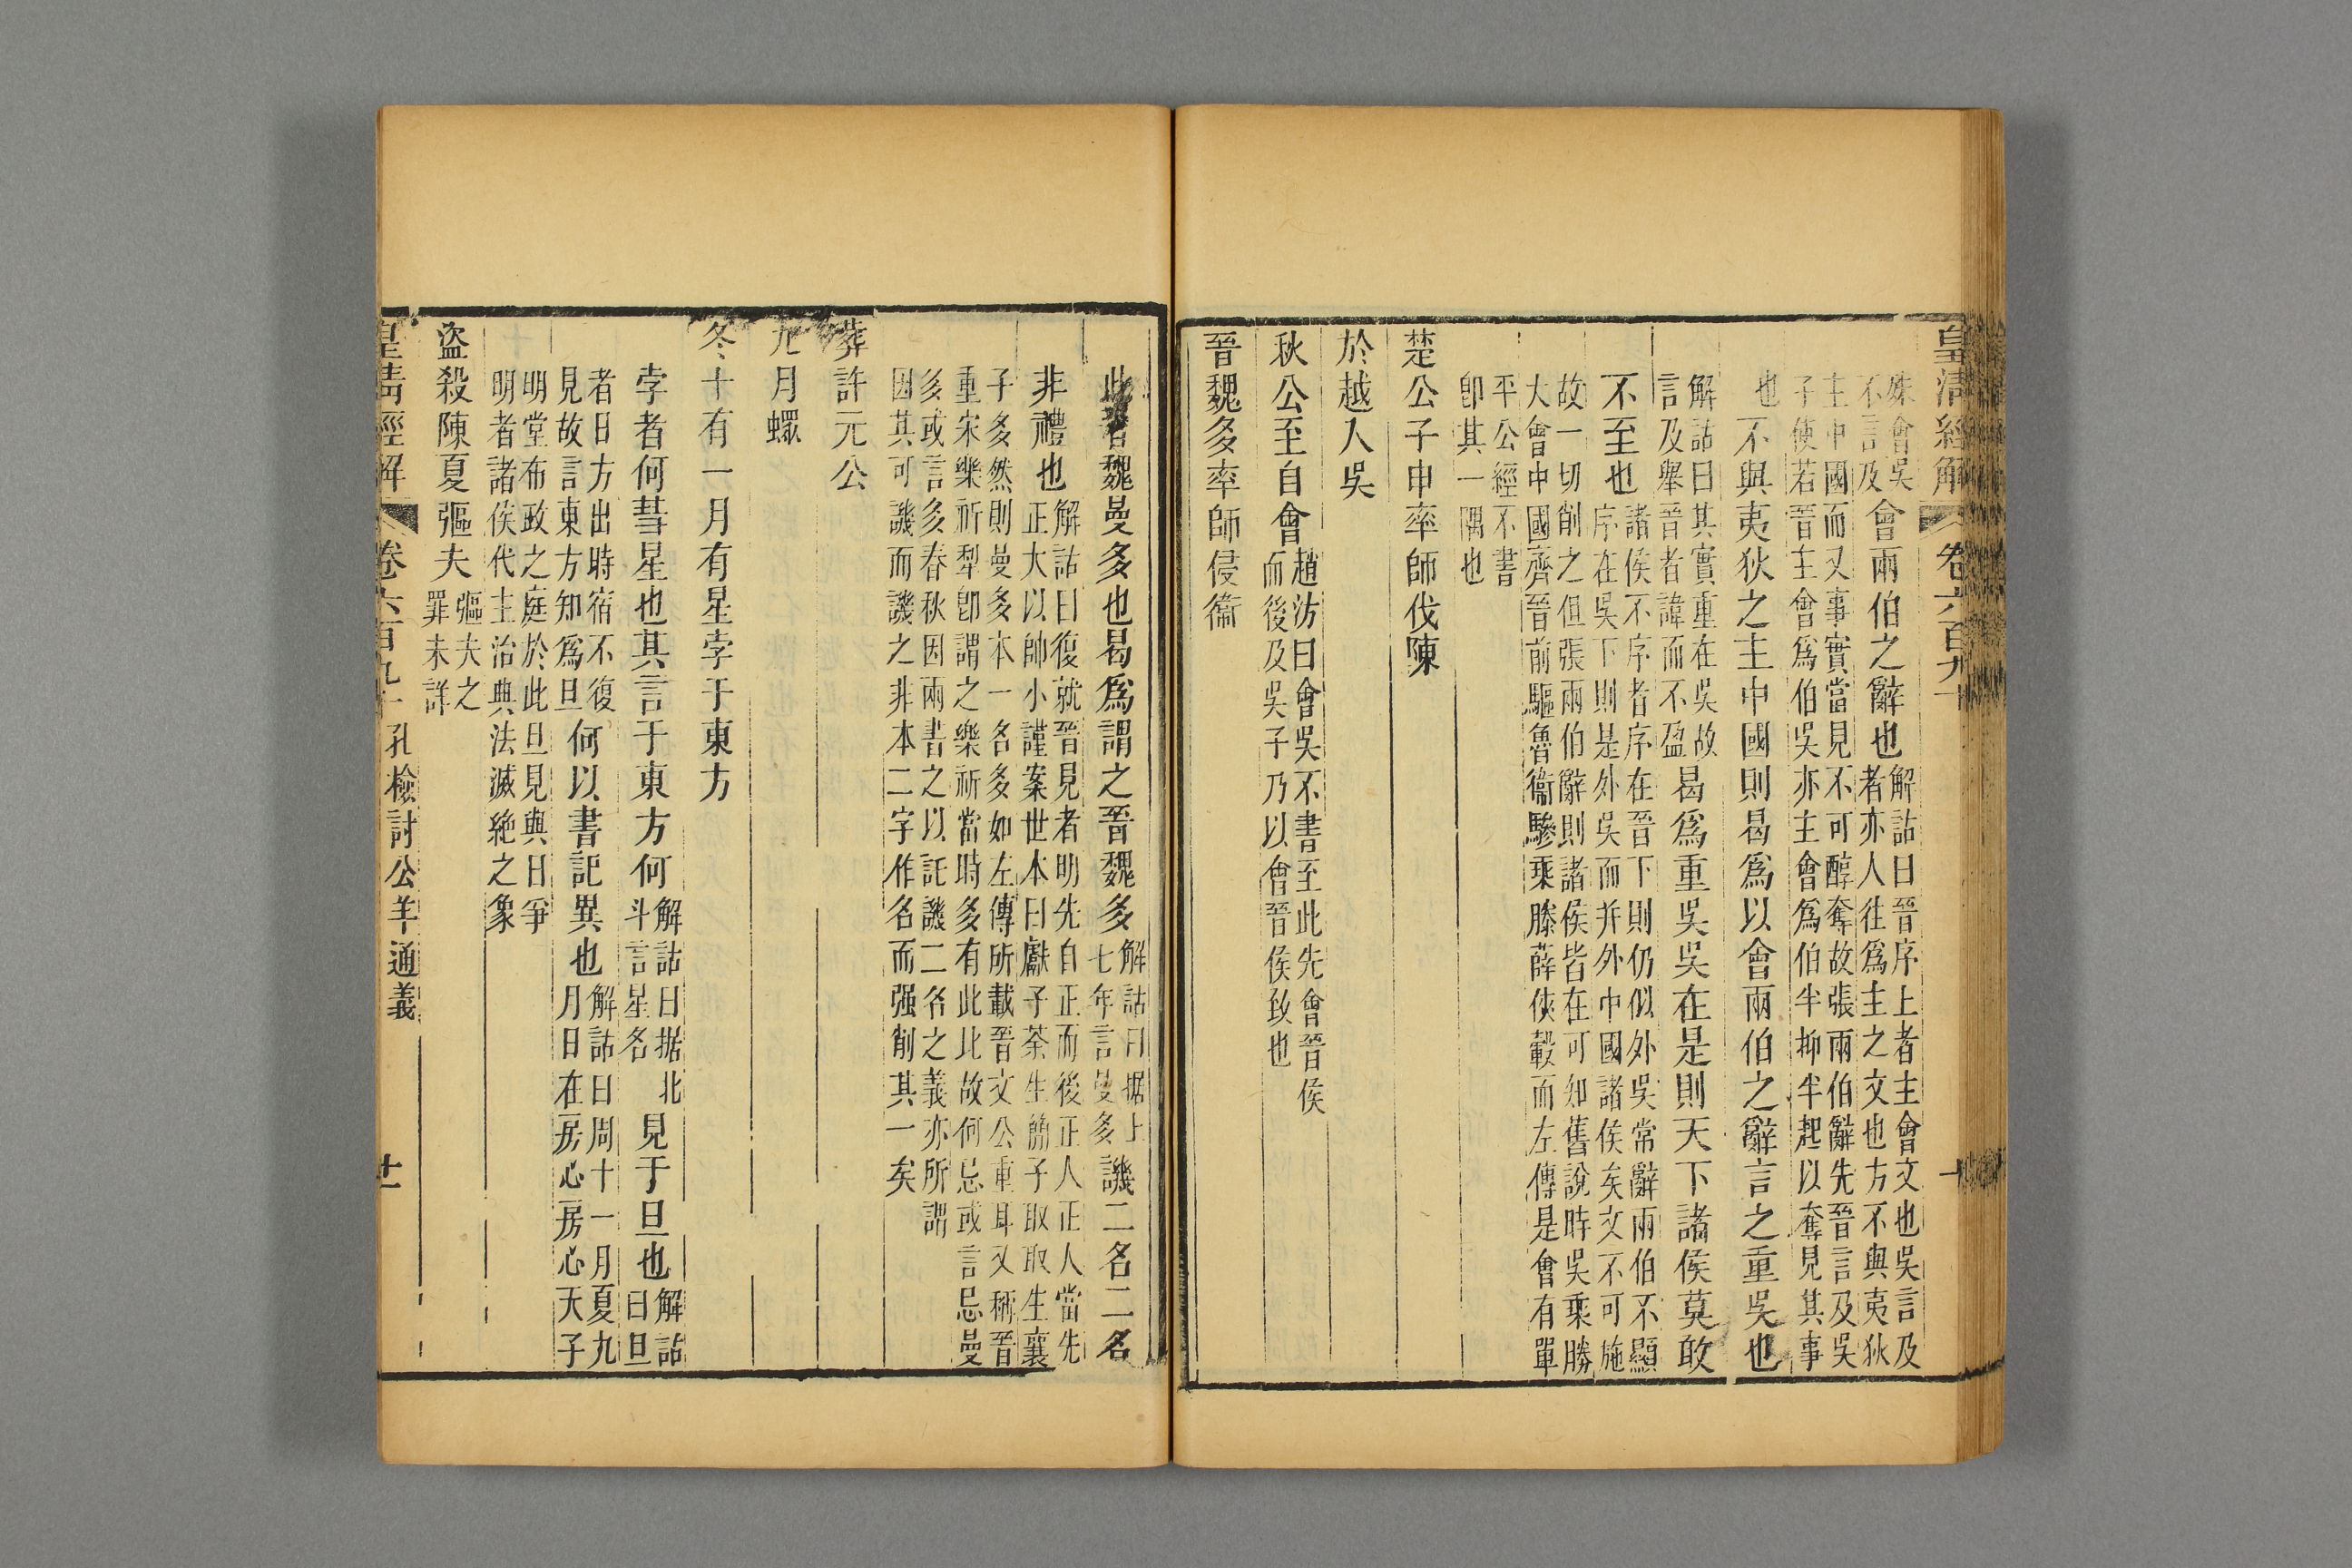 皇清經解 卷六百九十
殊會吳會兩伯之辭也解詁曰晉序上者主會文也吳言及
不言及者亦人往爲主之文也方不與夷狄
主中國而又事實當見不可醇奪故張兩伯辭先晉言及吳
子使若晉主會爲伯吳亦主會爲伯半抑半起以奪見其事
也不與夷狄之主中國則曷爲以會兩伯之辭言之重吳也
解詁曰其實重在吳故曷爲重吳吳在是則天下諸侯莫敢
言及舉晉者諱而不盈
不至也諸侯不序者序在晉下則仍似外吳常辭兩伯不顯
序在吳下則是外吳而并外中國諸侯矣文不可施
故一切削之但張兩伯辭則諸侯皆在可知舊說時吳乘勝
大會中國齊晉前驅魯衞驂乘滕薛俠轂而左傳是會有單
平公經不書
卽其一隅也
楚公子申率師伐陳
於越入吳
秋公至自會趙汸曰會吳不書至此先會晉侯
而後及吳子乃以會晉侯致也
晉魏多率師侵衞
此晉魏曼多也曷爲謂之晉魏多解詁曰据上
七年言曼多譏二名二名
非禮也解詁曰復就晉見者明先自正而後正人正人當先
正大以帥小謹案世本曰獻子荼生簡子取取生襄
子多然則曼多本一名多如左傳所載晉文公重耳又稱晉
重宋樂祈犁卽謂之樂祈當時多有此比故何忌或言忌曼
多或言多春秋因兩書之以託譏二名之義亦所謂
因其可譏而譏之非本二字作名而强削其一矣
葬許元公
九月螽
冬十有一月有星孛于東方
孛者何彗星也其言于東方何解詁曰据北
斗言星名見于旦也解詁
曰旦
者日方出時宿不復
見故言東方知爲旦何以書記異也解詁曰周十一月夏九
月日在房心房心天子
明堂布政之庭於此旦見與日爭
明者諸侯代主治典法滅絶之象
盜殺陳夏彄夫彄夫之
罪未詳
皇清經解 卷六百九十 孔檢討公羊通義 廿一